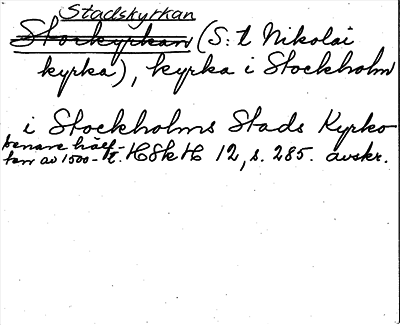 Stadskyrkan
Storkyrkan (S:t Nikolai
kyrka), kyrka i Stockholm
i Stockholms Stads Kyrko
senare hälf-
ten av 1500-t. HSkH 12, s. 285. avskr.